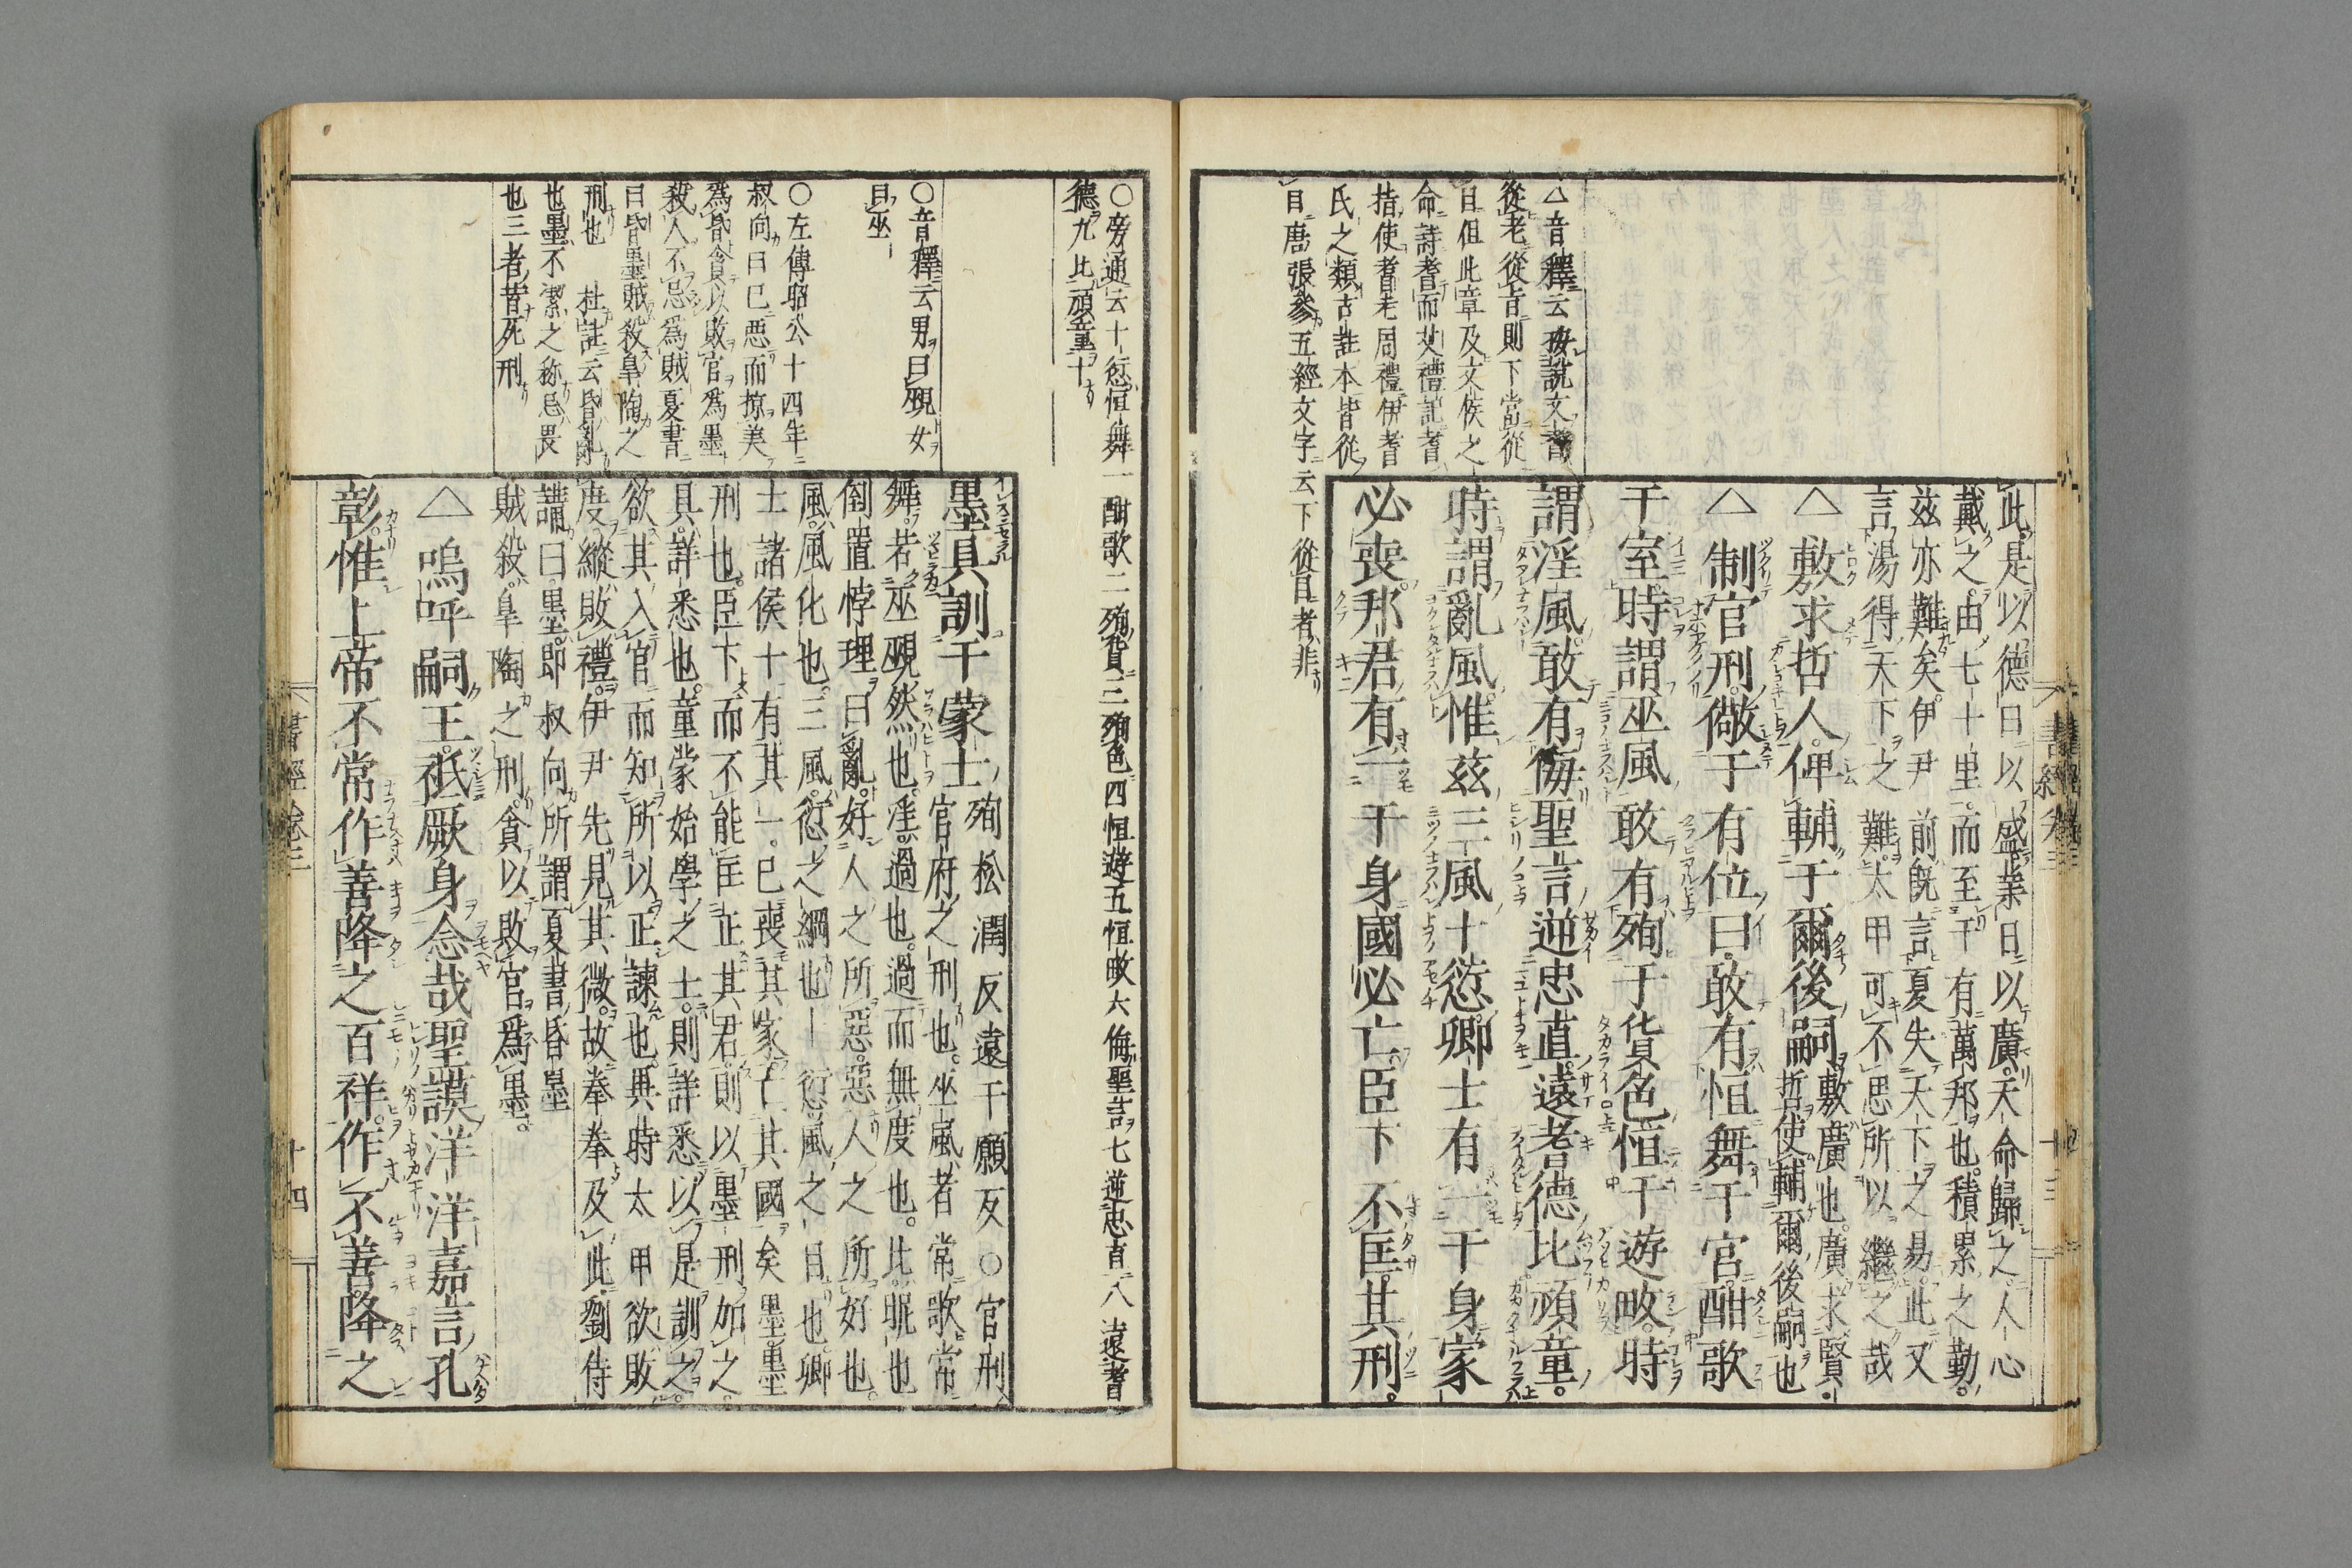 此是以德日以盛業日以廣天命歸之人心
戴之由七十里而至于有萬邦也積累之勤
茲亦難矣伊尹前既言夏失天下之易此又
言湯得天下之難太甲可不思所以繼之哉
△敷求哲人俾輔于爾後嗣敷廣也廣求賢
哲使輔爾後嗣也
△制官刑儆于有位曰敢有恒舞于官酣歌
于室時謂巫風敢有殉于貨色恒于遊畋時
謂淫風敢有侮聖言逆忠直遠耆德比頑童
時謂亂風惟茲三風十愆卿士有一于身家
必喪邦君有一于身國必亡臣下不匡其刑
△音釋云按說文耆
從老從旨則下當從
日但此章及文侯之
命詩耆而艾禮記耆
指使耆老周禮伊耆
氏之類古註本皆從
日唐張參五經文字云下從日者非
書經卷三
十三
○旁通云十愆恒舞一酣歌二殉貨三殉色四恒遊五恒畋六侮聖言七逆忠直八遠耆
德九比頑童十
墨具訓于蒙士殉松潤反遠于願反○官刑
官府之刑也巫風者常歌常
舞若巫覡然也淫過也過而無度也比昵也
倒置悖理曰亂好人之所惡惡人之所好也
風風化也三風愆之綱也十愆風之目也卿
士諸侯十有其一已喪其家亡其國矣墨墨
刑也臣下而不能匡正其君則以墨刑加之
具詳悉也童蒙始學之士則詳悉以是訓之
欲其入官而知所以正諫也異時太甲欲敗
度縱敗禮伊尹先見其微故拳拳及此劉侍
講曰墨即叔向所謂夏書昏墨
賊殺皐陶之刑貪以敗官爲墨
△嗚呼嗣王祗厥身念哉聖謨洋洋嘉言孔
彰惟上帝不常作善降之百祥作不善降之
○音釋云男曰覡女
曰巫
○左傳昭公十四年
叔向曰已惡而掠美
爲昏貪以敗官爲墨
殺人不忌爲賊夏書
曰昏墨賊殺皐陶之
刑也 杜註云昏亂
也墨不潔之称忌畏
也三者皆死刑
書經卷三
十四